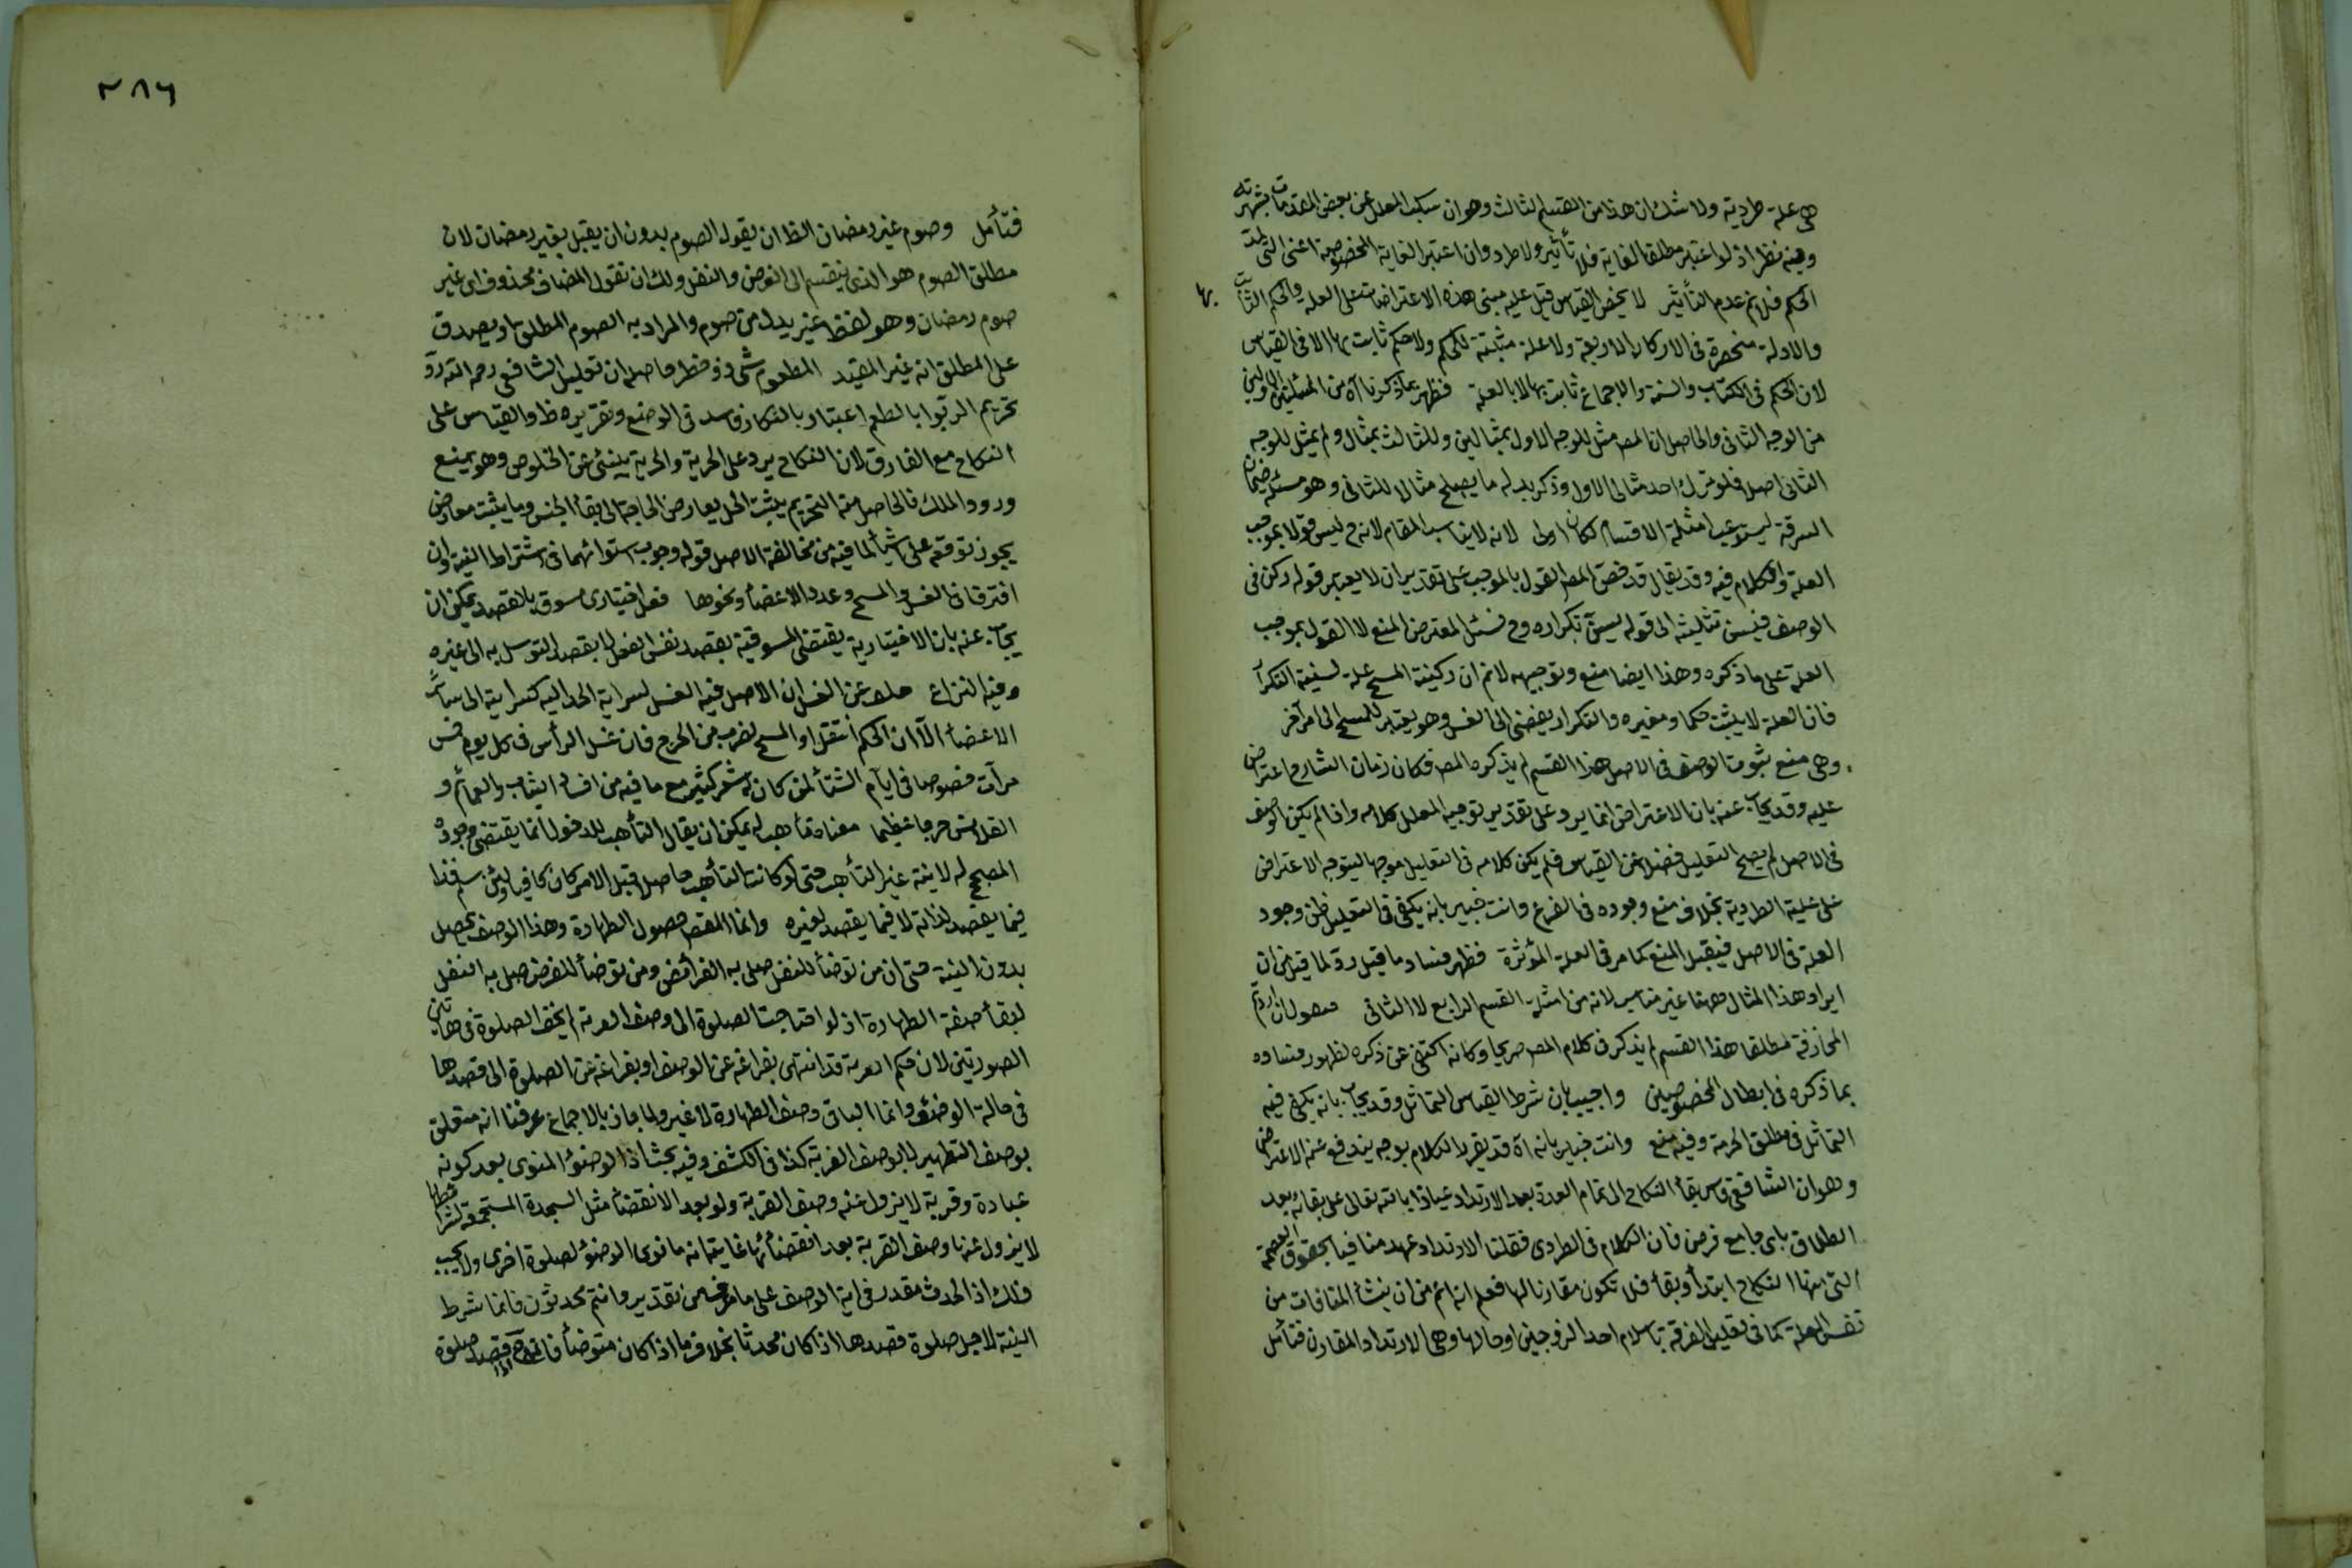 هى علة طردية ولا شك ان هذا من القسم الثالث وهو ان سكت المعلل عن بعض المقدمات لشهرته
وفيه نظر اذ لو اعتبر مطلقا الغاية فلا تأثير ولا طرد وان اعتبر الغاية المخصوصة اعنى التى
الحكم فلا نم عدم التأثير لا يخص القياس قيل عليه مبنى هذه الاعتراضات على العلة والحكم الثابت بها
والادلة منحصرة فى الاركان الاربعة ولا علة مثبتة للحكم ولا حكم ثابت بها الا فى القياس
لان الحكم فى الكتاب والسنة والاجماع ثابت بها لا بالعلة فظهر بما ذكرنا اه من المسئلتين الاوليين
من الوجه الثانى والحاصل ان المص مثل للوجه الاول بمثالين وللثالث بمثال ولم يمثل للوجه
الثانى اصلا فلو ترك احد مثالى الاول وذكر بدله ما يصلح مثالا للثانى وهو مسئلة ضمان
السرقة ليستوعب امثلة الاقسام لكان اولى لانه لا يناسب المقام لانه ح ليس قولا بموجب
العلة والكلام فيه وقد يقال قد خص المص القول بالموجب على تقدير ان لا يعتبر قوله ركن فى
الوصف فيسن تثليثه الى قوله يسن تكراره وح فسئل المعترض المنع لا القول بموجب
العلة على ما ذكره وهذا ايضا منع وتوجيهه لا نم ان ركنية المسح علة لسنية التكرار
فان العلة لا يثبت حكما ومغيره والتكرار يفضى الى الغسل وهو يعتبر للمسح الى امر آخر
وهى منع ثبوت الوصف فى الاصل هذا القسم لم يذكره المص فكان زمان الشارح اعتراض
عليه وقد يجاب عنه بان الاعتراض انما يرد على تقدير توجيه المعلل كلامه واذا لم يكن الوصف
فى الاصل لم يصح التعليل فضلا عن القياس فلم يكن كلامه فى التعليل موجها ليتوجه الاعتراض
على علية الطردية بخلاف منع وجوده فى الفرع وانت خبير بانه يكفى فى التعليل ظن وجود
العلة فى الاصل فيقبل المنع كما مر فى العلة المؤثرة فظهر فساد ما قيل رد لما قيل من ان
ايراد هذا المثال ههنا غير مناسب لانه من امثلة القسم الرابع لا الثانى فنقول ان اردتم
المجازفة مطلقا هذا القسم لم يذكر فى كلام المص صريحا وكانه اكتفى عن ذكره لظهور فساده
بما ذكره فى ابطال المخصوصين واجيب بان شرط القياس التماثل وقد يجاب بانه يكفى فيه
التماثل فى مطلق الحرمة وفيه منع وانت خبير بانه اه قد يقرر الكلام بوجه يندفع عنه الاعتراض
وهو ان الشافعى قاس بقاء النكاح الى تمام العدة بعد الارتداد عياذا بالله تعالى على بقائه بعد
الطلاق باى جامع فرض فان الكلام فى الطردى فقلنا الارتداد عهد منافيا لحقوق العصمة
التى منها النكاح ابتداء وبقاء فلا تكون مقارنا لها فعلم انه اعم من ان ينشأ المنافات من
نفس العلة كما فى تعليل الفرقة باسلام احد الزوجين او حالها وهى الارتداد المقارن فتأمل
٢٨٦
فتأمل وصوم غير رمضان الظ ان يقول الصوم بدون ان يقبل بغير رمضان لان
مطلق الصوم هو الذى ينقسم الى الفرض والنفل ولك ان تقول المضاف محذوف اى غير
صوم رمضان وهو لفظ غير بدل من صوم والمراد به الصوم المطلق او يصدق
على المطلق انه غير المقيد المطعوم شىء ذو خطر حاصله ان تعليل الشافعى رحمه الله
تحريم الربوا بالطعم اعتبارا بالنكاح فاسد فى الوضع وتقريره ظ والقياس على
النكاح مع الفارق لان النكاح يرد على الحرية والحرية ينبئ عن الخلوص وهو يمنع
ورود الملك فالحاصل منه التحريم يثبت الحل يعارض الحاجة الى بقاء الجنس وما يثبت معارض
يجوز توقفه على اشياء لما فيه من مخالفة الاصل قوله وجوب استوائهما فى اشتراط النية وان
افترقا فى الغسل والمسح وعدد الاعضاء ونحوها فعل اختيارى مسوق بالقصد يمكن ان
يجاب عنه بان الاختيارية يقتضى المسوقية بقصد نفس الفعل لا بقصد التوسل به الى غيره
وفيه النزاع خلف عن الغسل ان الاصل فيه الغسل لسراية الحدث اليه كسرايته الى سائر
الاعضاء الا ان الحكم انتقل الى المسح لضرب من الحرج فان غسل الرأس فى كل يوم خمس
مرات خصوصا فى ايام الشتاء لمن كان له شعر كثير مع ما فيه من افساد الثياب والعمائم و
القلانس حرجا عظيما معناه تأهب له يمكن ان يقال التأهب للدخول انما يقتضى وجوده
المصحح له لا نية غير التأهب حتى لو كانت التأهب حاصلا قبل الامر كان كافيا ولئن سلم فذا
فيما يقصد لذاته لا فيما يقصد لغيره وانما المقص حصول الطهارة وهذا الوصف يحصل
بدون النية حتى ان من توضأ للنفل صلى به الفرائض ومن توضأ للفرض صلى به النفل
لبقاء صفة الطهارة اذ لو احتاجت الصلوة الى وصف القربة لم يخف الصلوة فى هاتين
الصورتين لان حكم القربة قد انتهى بفراغه عن الوصف او بفراغه عن الصلوة الى قصدها
فى حالة الوضوء وانما الباقى وصف الطهارة لا غير ولما جاز بالاجماع عرفنا انه متعلق
بوصف التطهير لا بوصف القربة كذا فى الكشف وفيه بحث اذ الوضوء المنوى بعد كونه
عبادة وقربة لا يزول عنه وصف القربة ولو بعد الانقضاء مثل السجدة المستجمعة لشرائطها
لا يزول عنها وصف القربة بعد انقضائها غايتها انه ما نوى الوضوء لصلوة اخرى ولا يجب
ذلك اذ الحدث مقدر فى آية الوصف على ما مر من تقدير وانتم محدثون فانما شرط
النية لاجل صلوة قصدها اذا كان محدثا بخلاف ما اذا كان متوضأ قصد صلوة